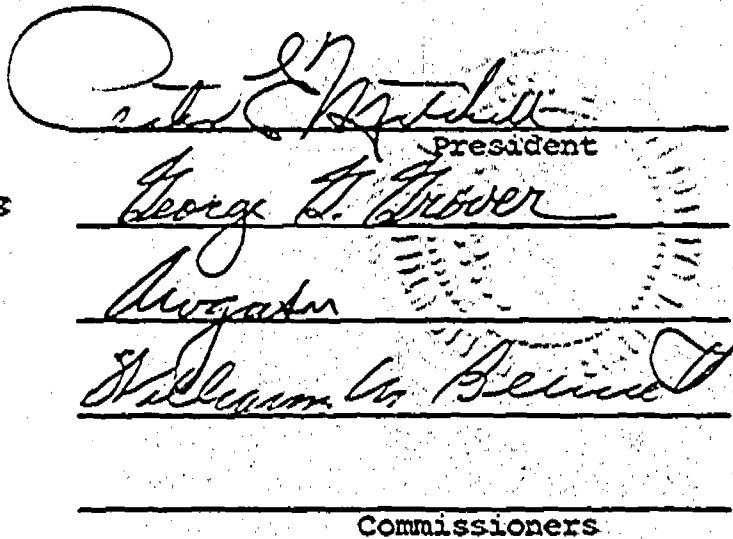 Peter E. Mitchell
President
George G. Grover
William M. Bennett
Commissioners